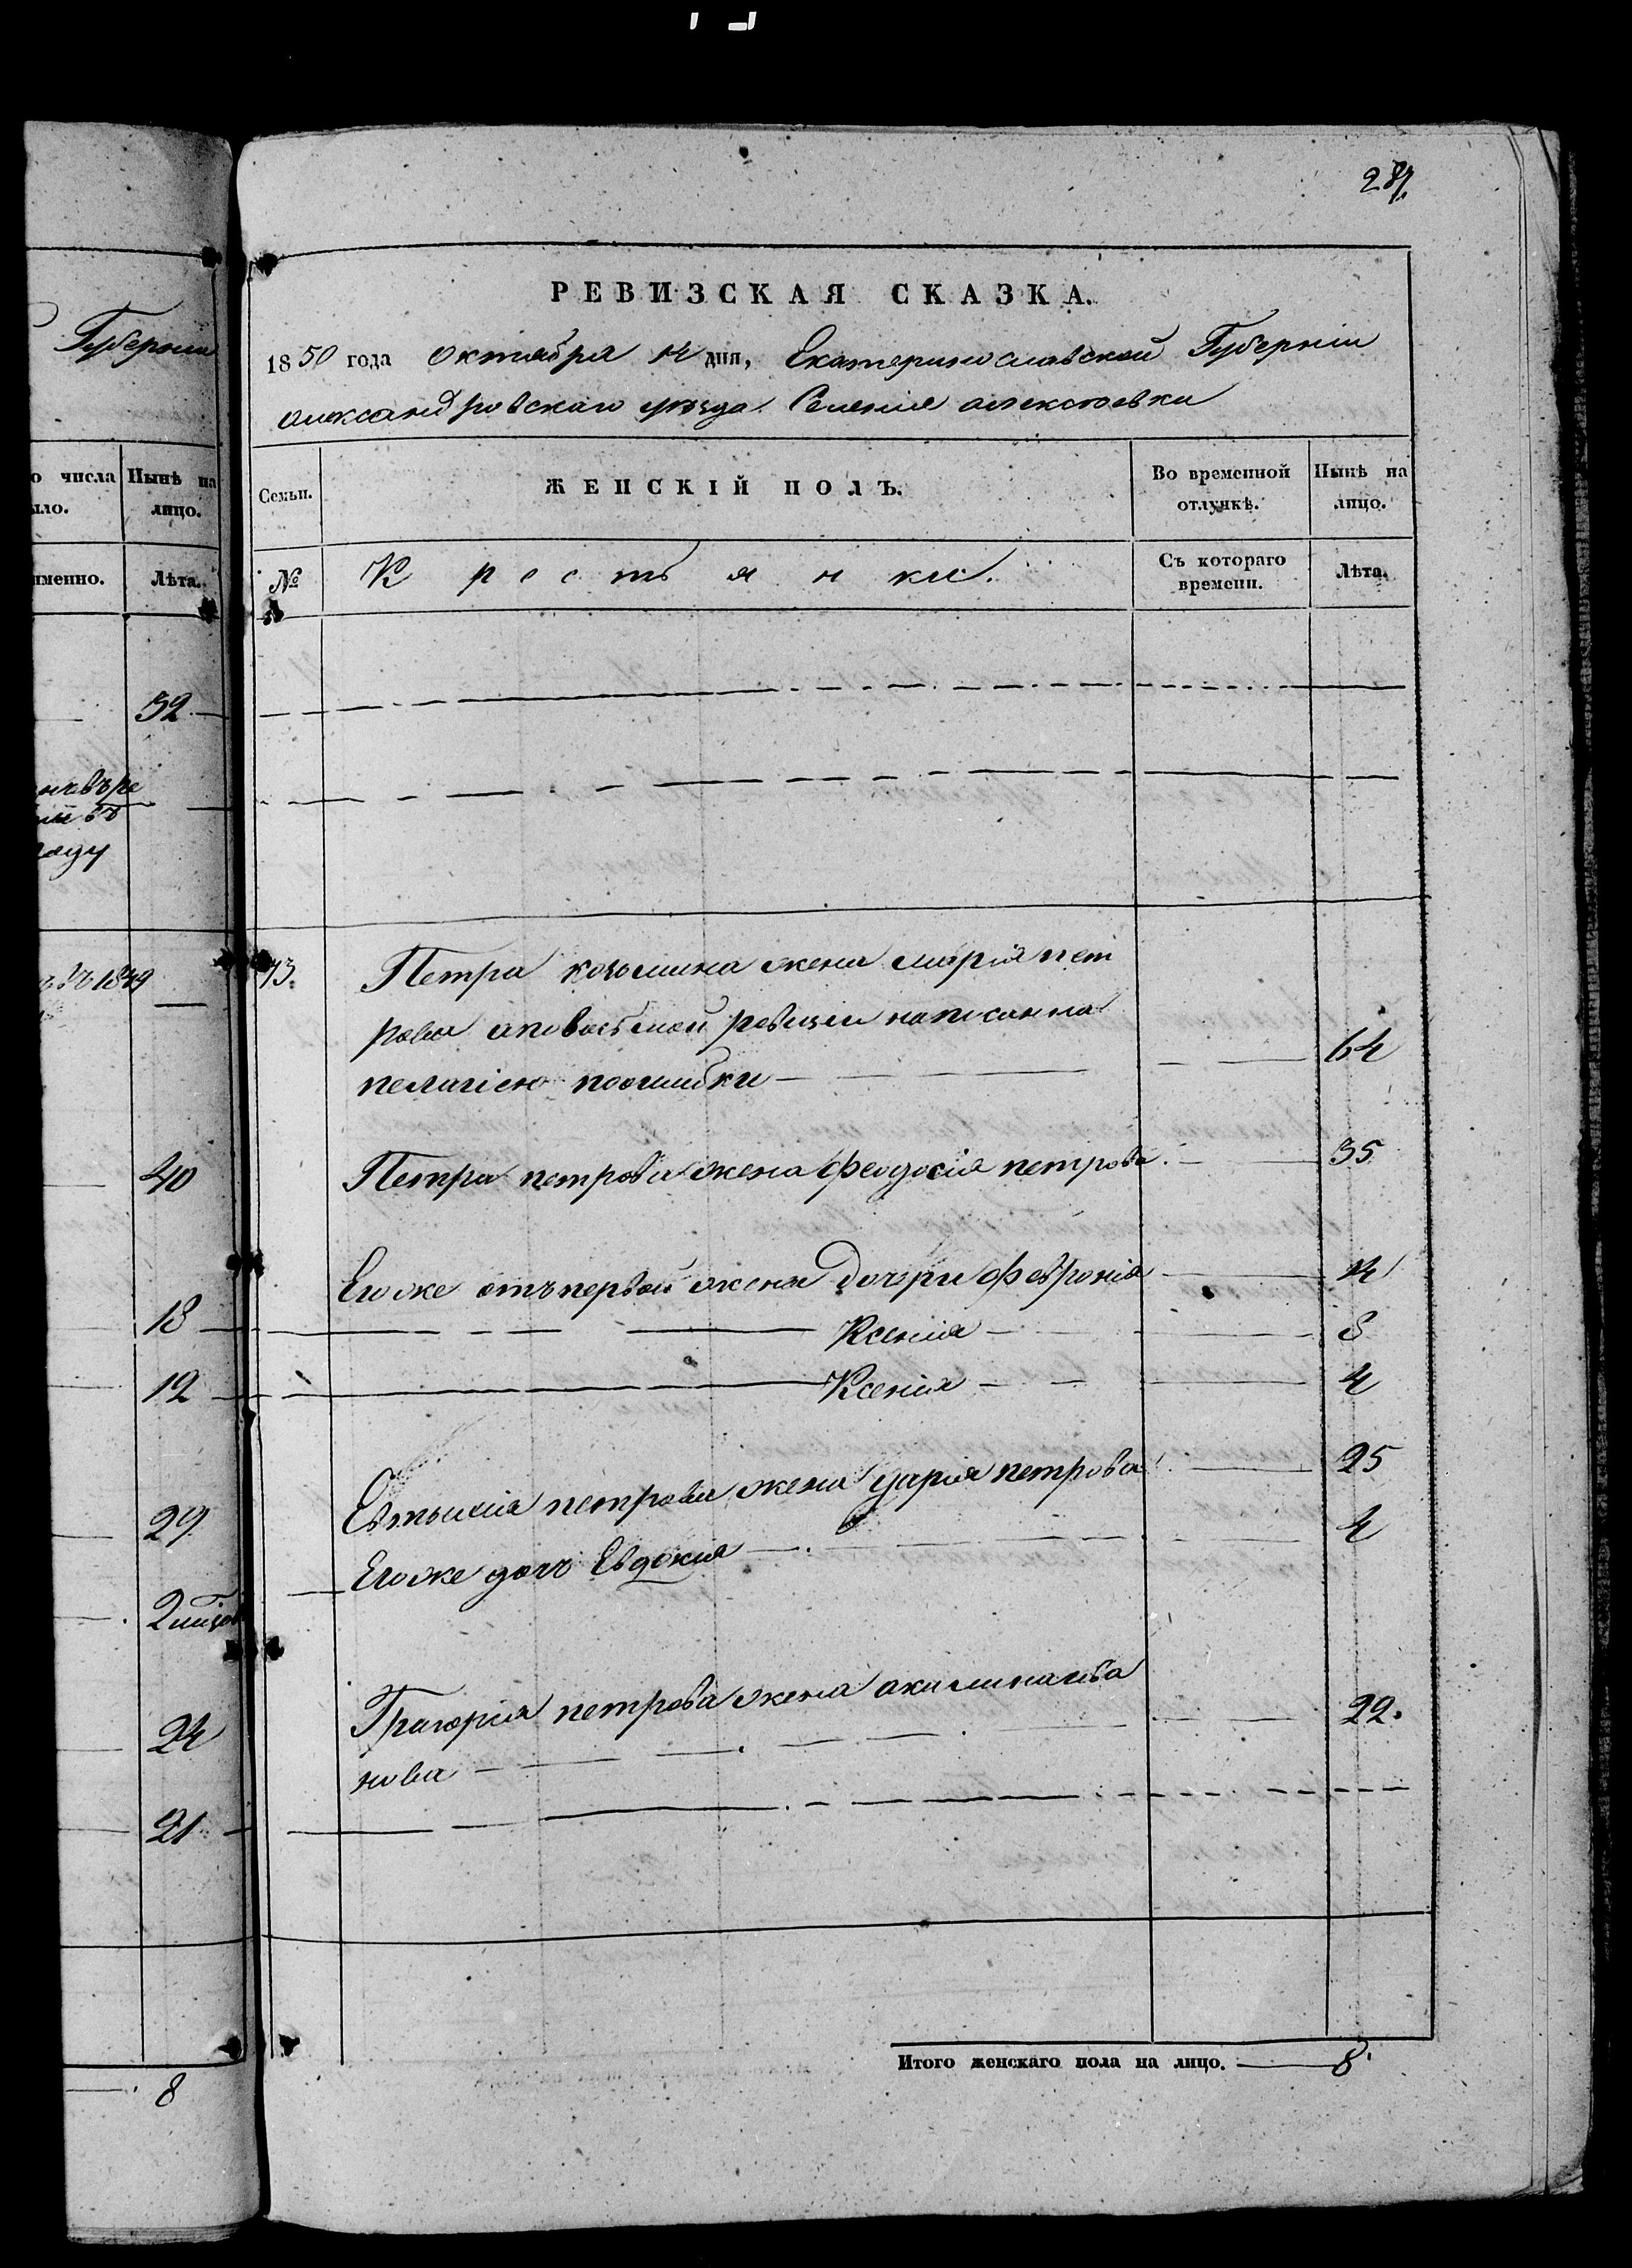 287.
РЕВИЗСКАЯ СКАЗКА.
1850 года Октября 14 дня, Екатеринославской Губерніи
Александровскаго уѣзда Селенія Алексѣевки
Семьи.
ЖЕНСКІЙ ПОЛЪ.
Во временной отлучкѣ.
Нынѣ на лицо.
№
Крестьянки.
Съ котораго времени.
Лѣта.
73.
Петра козьмина жена марія пет
рова аповосьмой ревизіи написанна
пелагіею поошибки — 64
Петра петрова жена феодосія петрова — 35
Егоже отъ первой жены дочери февронія — 14
Ксенія — 8
Ксенія — 4
Евтихія петрова жена дарія петрова — 25
Егоже дочь Евдокія — 4
Григорія петрова жена акилина ива
нова — 22.
Итого женскаго пола на лицо. — 8.
Губерніи
о числа
ыло.
Нынѣ на
лицо.
именно.
Лѣта.
52
1849
40
18
12
29
24
21
8